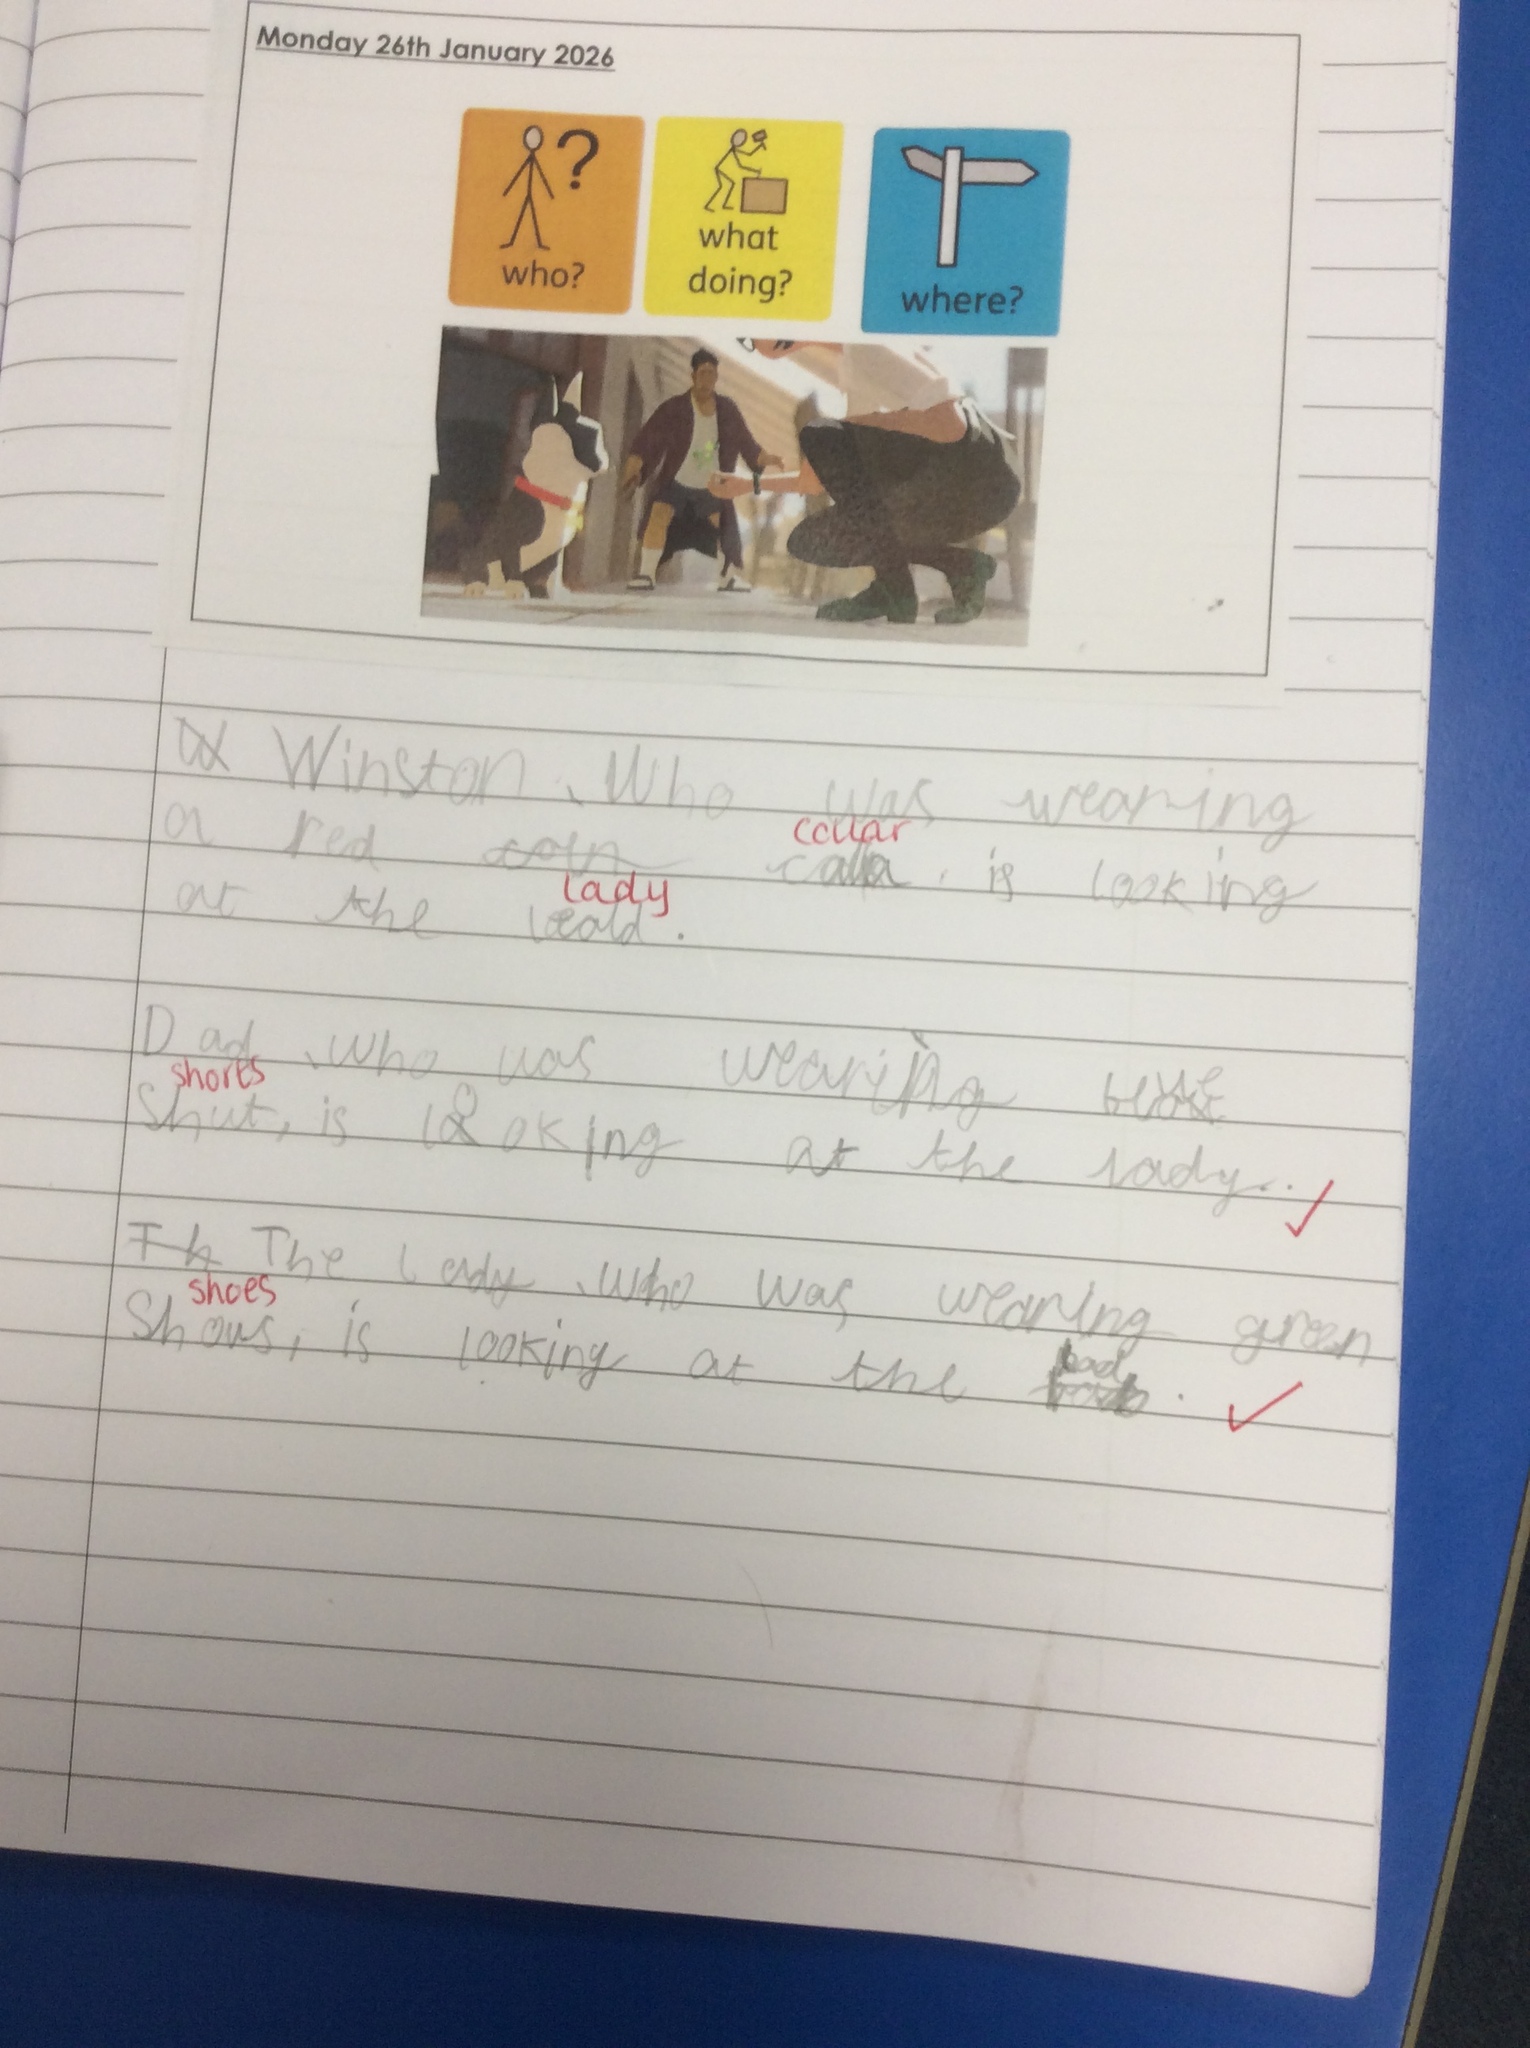 Monday 26th January 2026
who?
what
doing?
where?
W Winston, Who was wearing
collar
a red calla, is looking
lady
at the leald.
Dad, who was wearing blue
shorts
Shut, is looking at the lady..
Th The Lady, who was wearing green
shoes
Shous, is looking at the